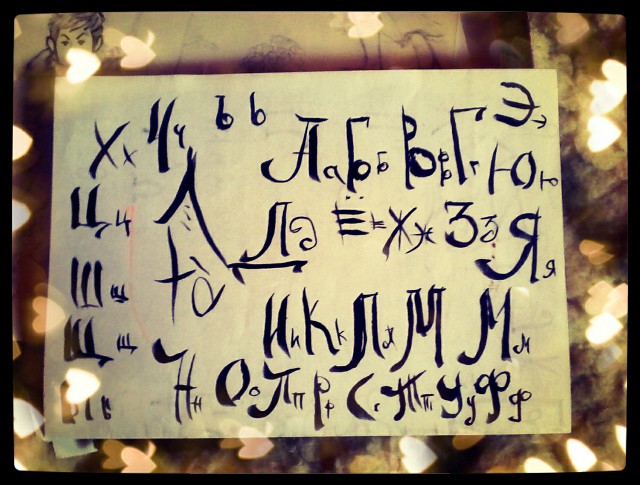 Аа Бб Вв Гг
Дд Ёё Жж Зз
Ии Кк Лл М Мм
Нн Оо Пп Рр Сс Тт Уу Фф
Хх Чч Ъ Ь
Цц
Шш
Щщ
Ээ
Юю
Яя